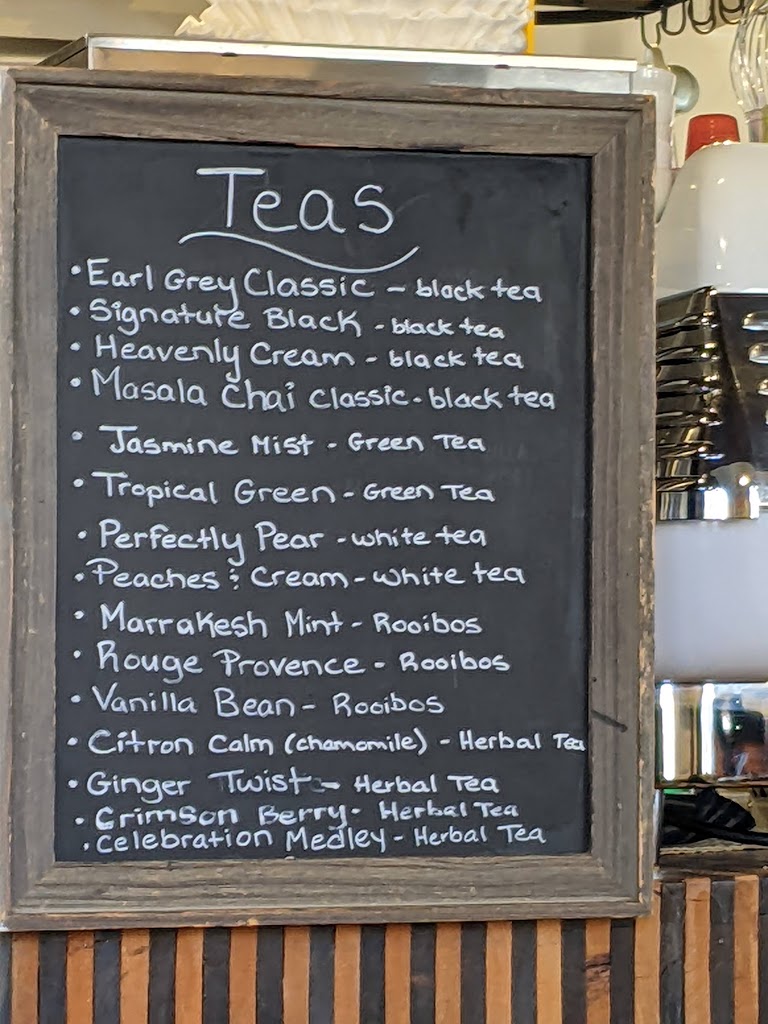 Teas
• Earl Grey Classic - black tea
• Signature Black - black tea
• Heavenly Cream - black tea
• Masala Chai Classic - black tea
• Jasmine Mist - Green Tea
• Tropical Green - Green Tea
• Perfectly Pear - white tea
• Peaches & Cream - white tea
• Marrakesh Mint - Rooibos
• Rouge Provence - Rooibos
• Vanilla Bean - Rooibos
• Citron Calm (chamomile) - Herbal Tea
• Ginger Twist - Herbal Tea
• Crimson Berry - Herbal Tea
• Celebration Medley - Herbal Tea